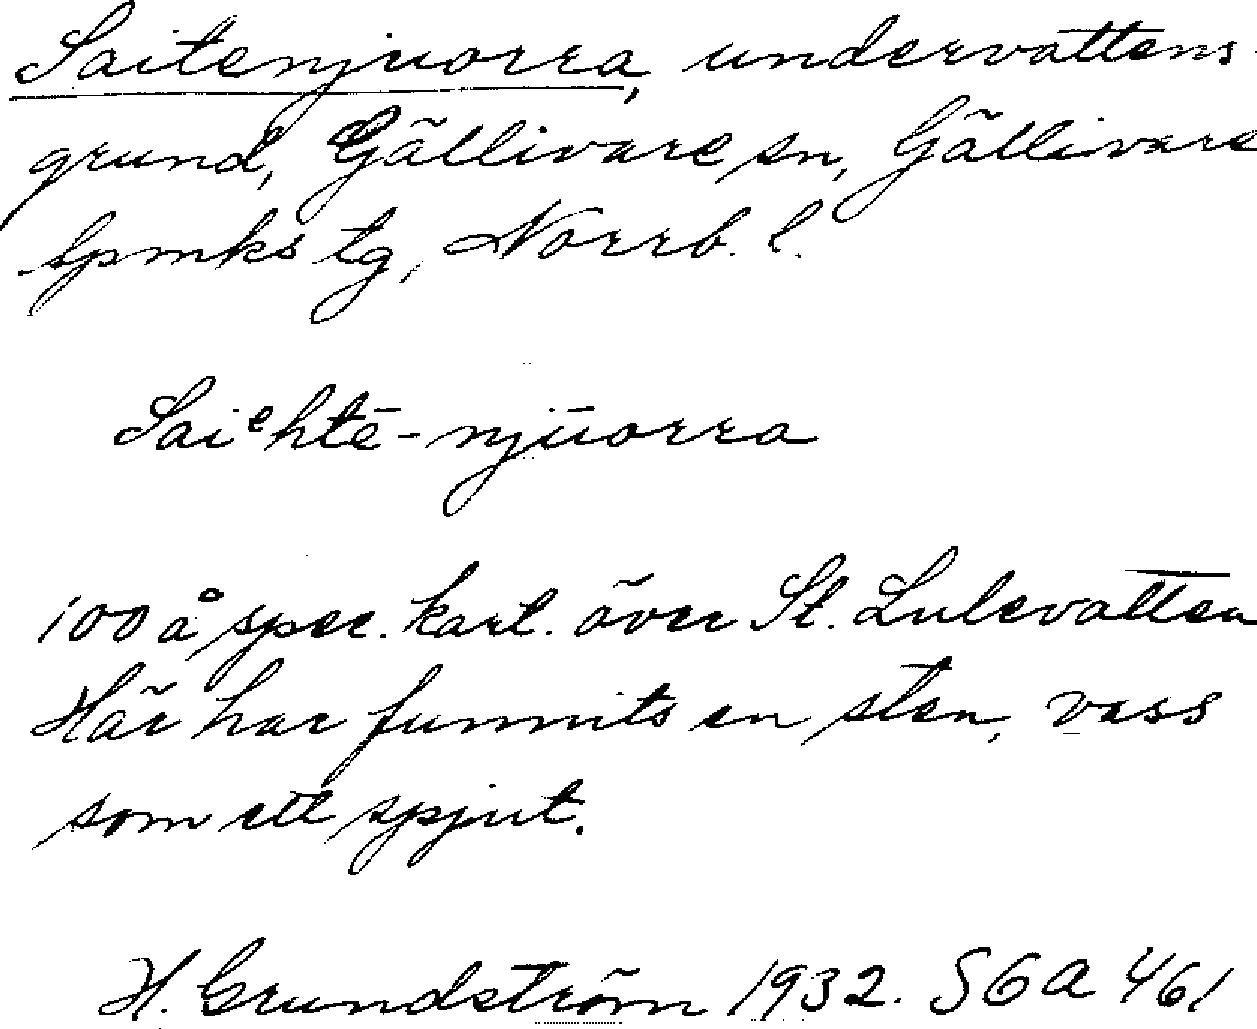 Saitenjuorra, undervattens-
grund, Gällivare sn, Gällivare
lpmks tg, Norrb. l.
Saiᵉhtē-njūorra
100 å spec. kart. över St. Lulevatten
Här har funnits en sten, vass
som ett spjut.
H. Grundström 1932. SGA 461